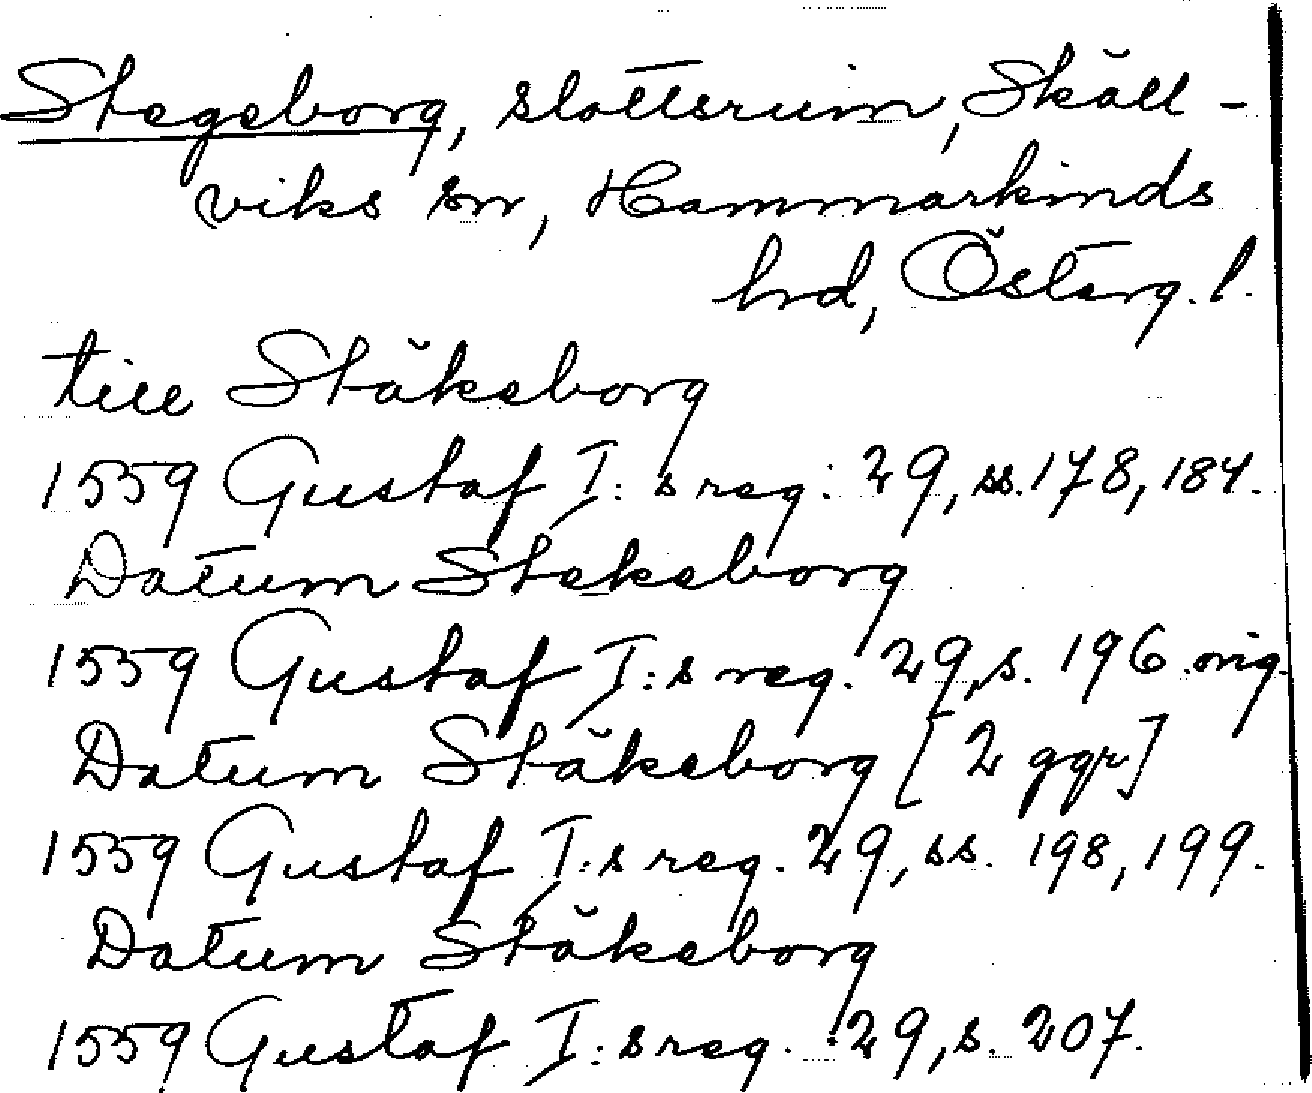 Stegeborg, slottsruin, Skäll-
viks sn, Hammarkinds
hrd, Österg. l.
till Stäkeborg
1559 Gustaf I:s reg. 29, ss. 178, 184.
Datum Stekeborg
1559 Gustaf I:s reg. 29, s. 196 orig.
Datum Stäkeborg [2 ggr]
1559 Gustaf I:s reg. 29, ss. 198, 199.
Datum Stäkeborg
1559 Gustaf I:s reg. 29, s. 207.